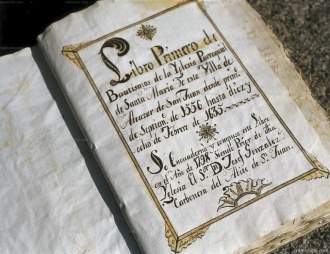 Libro Primero de
Bautismos de la Yglesia Parroquial
de Santa Maria de esta Villa de
Alcazar de San Juan desde prim.
de Septiem. de 1556 hasta diez y
ocho de Febrer. de 1635.
Se Enquaderno y compuso este Libro
en el Año de 1798 Siendo Prior de dha.
Iglesia El Sr. D. Josef Gonzalez
Carbonera del Avito de S. Juan.